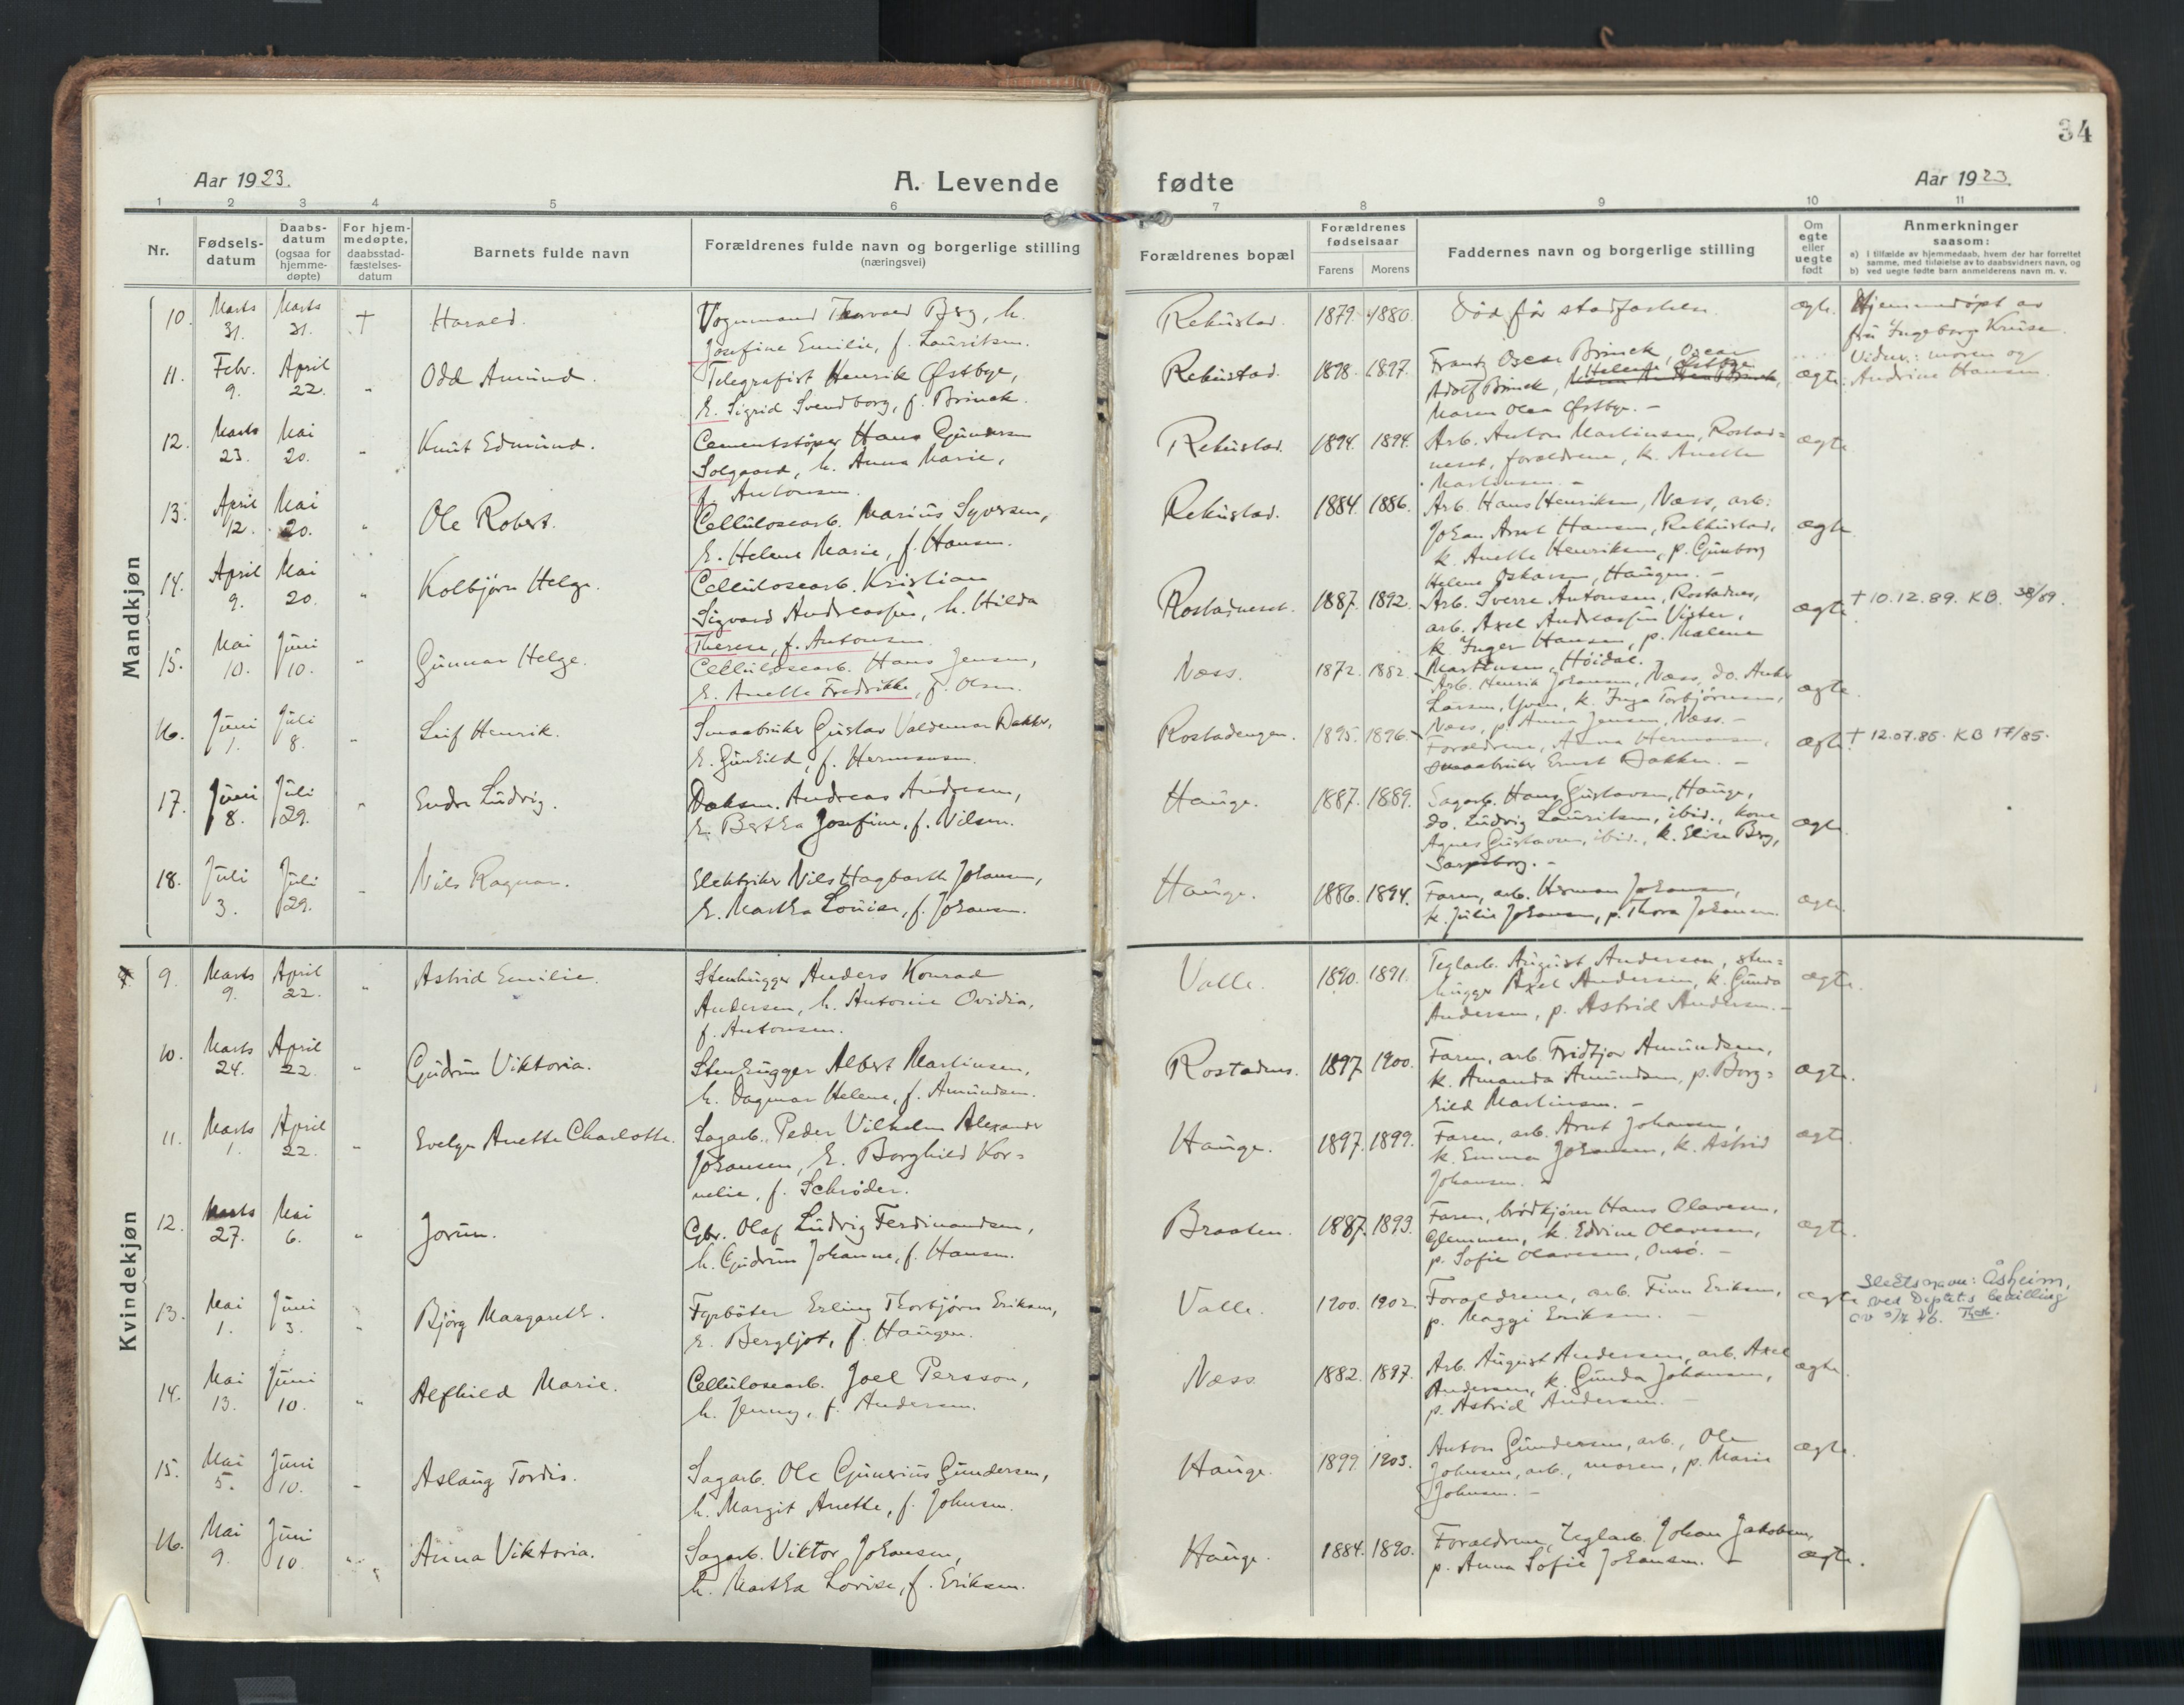 34
Aar 1923.
A. Levende fødte
Aar 1923.
1 2 3 4 5 6 7 8 9 10 11
Nr.
Fødsels-
datum
Daabs-
datum
(ogsaa for
hjemme-
døpte)
For hjem-
medøpte,
daabsstad-
fæstelses-
datum
Barnets fulde navn
Forældrenes fulde navn og borgerlige stilling
(næringsvei)
Forældrenes bopæl
Forældrenes
fødselsaar
Farens Morens
Faddernes navn og borgerlige stilling
Om
egte
eller
uegte
født
Anmerkninger
saasom:
a) i tilfælde av hjemmedaab, hvem der har forrettet
samme, med tilføielse av to daabsvidners navn, og
b) ved uegte fødte barn anmelderens navn m. v.
Mandkjøn
10. Marts 31. Marts 31. † Harald.
Vognmand Thorvald Berg, h.
Josefine Emilie, f. Lauritsen.
Rekustad. 1879. 1880.
Død før stadfæstelse.
ægte.
Hjemmedøpt av
fru Ingeborg Kruse.
Vidner: moren og
Andrine Hansen.
11. Febr. 9. April 22. " Odd Amund.
Telegrafist Henrik Østbye,
h. Sigrid Svendborg, f. Brinck.
Rekustad. 1898. 1897.
Frantz Oscar Brinck, Oscar
Adolf Brinck, Helene Østbye
Maren Olea Østbye. –
ægte.
12. Marts 23. Mai 20. " Knut Edmund.
Cementstøper Hans Gundersen
Solgaard, h. Anna Marie,
f. Antonsen.
Rekustad. 1894. 1894.
Arb. Anton Martinsen, Rostad=
neset, forældrene, k. Anette
Martinsen. –
ægte
13. April 12. Mai 20. " Ole Robert.
Cellulosearb. Marius Syversen,
h. Helene Marie, f. Hansen.
Rekustad. 1884. 1886.
Arb. Hans Henriksen, Næss, arb.
Johan Arnt Hansen, Rekkustad,
k. Anette Henriksen, p. Gunborg
Helene Oskarsen, Haugen. –
ægte
14. April 9. Mai 20. " Kolbjørn Helge.
Cellulosearb. Kristian
Sigvard Andreassen, h. Hilda
Therese, f. Antonsen.
Rostadneset. 1887. 1892.
Arb. Sverre Antonsen, Rostadnes,
arb. Axel Andreassen Vister,
k. Inger Hansen, p. Malene
Martinsen, Høidal.
ægte
† 10.12.89. KB. 38/89.
15. Mai 10. Juni 10. " Gunnar Helge.
Cellulosearb. Hans Jensen,
h. Anette Fredrikke, f. Olsen.
Næss. 1872. 1882.
Arb. Henrik Johansen, Næss, do. Anker
Larsen, Yven, k. Inga Torbjørnsen,
Næss, p. Anna Jensen, Næss. –
ægte.
16. Juni 1. Juli 8. " Leif Henrik.
Smaabruker Gustav Valdemar Bakke,
h. Gunhild, f. Hermansen.
Rostadengen. 1895. 1896.
Forældrene, Anna Hermansen,
smaabruker Ernst Bakken. –
ægte
† 12.07.85. KB 17/85.
17. Juni 8. Juli 29. " Endre Ludvig.
Baksm. Andreas Andersen,
h. Bertha Josefine, f. Nilsen.
Hauge. 1887. 1889.
Sagarb. Hans Gustavsen, Hauge,
do. Ludvig Lauritsen, ibid., kone
Agnes Gustavsen, ibid., k. Elise Berg,
Sarpsborg. –
ægte.
18. Juli 3. Juli 29. " Nils Ragnar.
Elektriker Nils Hagbarth Johansen,
h. Martha Louise, f. Johansen.
Hauge. 1886. 1894.
Faren, arb. Herman Johansen,
k. Julie Johansen, p. Thora Johansen.
ægte.
Kvindekjøn
9. Marts 9. April 22. " Astrid Emilie.
Stenhugger Anders Konrad
Andersen, h. Antonie Ovidia,
f. Antonsen.
Valle. 1890. 1891.
Teglarb. August Andersen, sten=
hugger Axel Andersen, k. Gunda
Andersen, p. Astrid Andersen. –
ægte.
10. Marts 24. April 22. " Gudrun Viktoria.
Stenhugger Albert Martinsen,
h. Dagmar Helene, f. Amundsen.
Rostadnes. 1897. 1900.
Faren, arb. Fridtjov Amundsen,
k. Amanda Amundsen, p. Borg=
hild Martinsen. –
ægte.
11. Marts 1. April 22. " Evelyn Anette Charlotte.
Sagarb. Peder Vilhelm Alexander
Johansen, h. Borghild Kor=
nelie, f. Schrøder.
Hauge. 1897. 1899.
Faren, arb. Arnt Johansen,
k. Emma Johansen, k. Astrid
Johansen. –
ægte.
12. Marts 27. Mai 6. " Jorun.
Gbr. Olaf Ludvig Ferdinandsen,
h. Gudrun Johanne, f. Hansen.
Braaten. 1887. 1893.
Faren, brødkjører Hans Olavesen,
Glemmen, k. Edrine Olavesen,
p. Sofie Olavesen, Onsø. –
ægte.
13. Mai 1. Juni 3. " Bjørg Margareth.
Fyrbøter Erling Thorbjørn Eriksen,
h. Bergljot, f. Haugen.
Valle. 1900. 1902.
Forældrene, arb. Finn Eriksen,
p. Maggi Eriksen. –
ægte
Slektsnavn: Åsheim,
ved Deptets bevilling
14. Mai 13. Juni 10. " Alfhild Marie.
Cellulosearb. Joel Persson,
h. Jenny, f. Andersen.
Næss. 1882. 1897.
Arb. August Andersen, arb. Axel
Andersen, k. Gunda Johansen,
p. Astrid Andersen. –
ægte.
15. Mai 5. Juni 10. " Aslaug Tordis.
Sagarb. Ole Gunerius Gundersen,
h. Margit Anette, f. Johnsen.
Hauge. 1899. 1903.
Anton Gundersen, arb., Ole
Johnsen, arb., moren, p. Marie
Johnsen. –
ægte.
16. Mai 9. Juni 10. " Anna Viktoria.
Sagarb. Viktor Johansen,
h. Martha Lovise, f. Eriksen.
Hauge. 1884. 1890.
Forældrene, teglarb. Johan Jakobsen,
p. Anna Sofie Johansen. –
ægte.